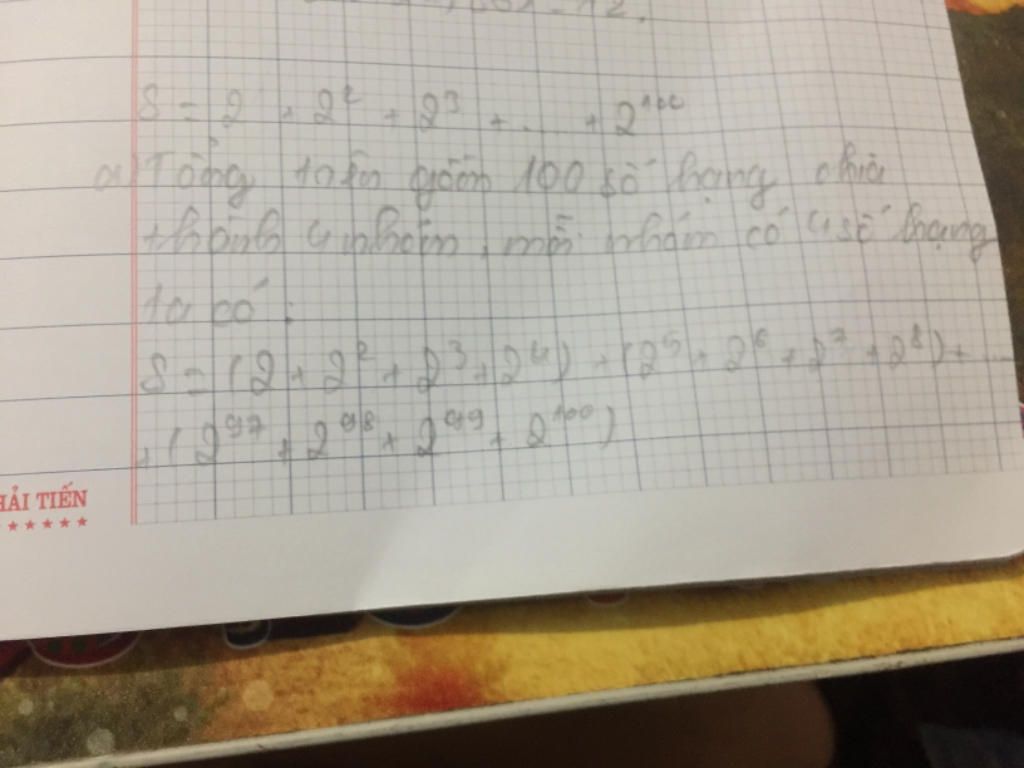 S = 2 + 2² + 2³ + ... + 2¹⁰⁰
a) Tổng trên gồm 100 số hạng chia
thành 4 nhóm, mỗi nhóm có 4 số hạng
ta có:
S = (2 + 2² + 2³ + 2⁴) + (2⁵ + 2⁶ + 2⁷ + 2⁸) + ...
+ (2⁹⁷ + 2⁹⁸ + 2⁹⁹ + 2¹⁰⁰)
HẢI TIẾN